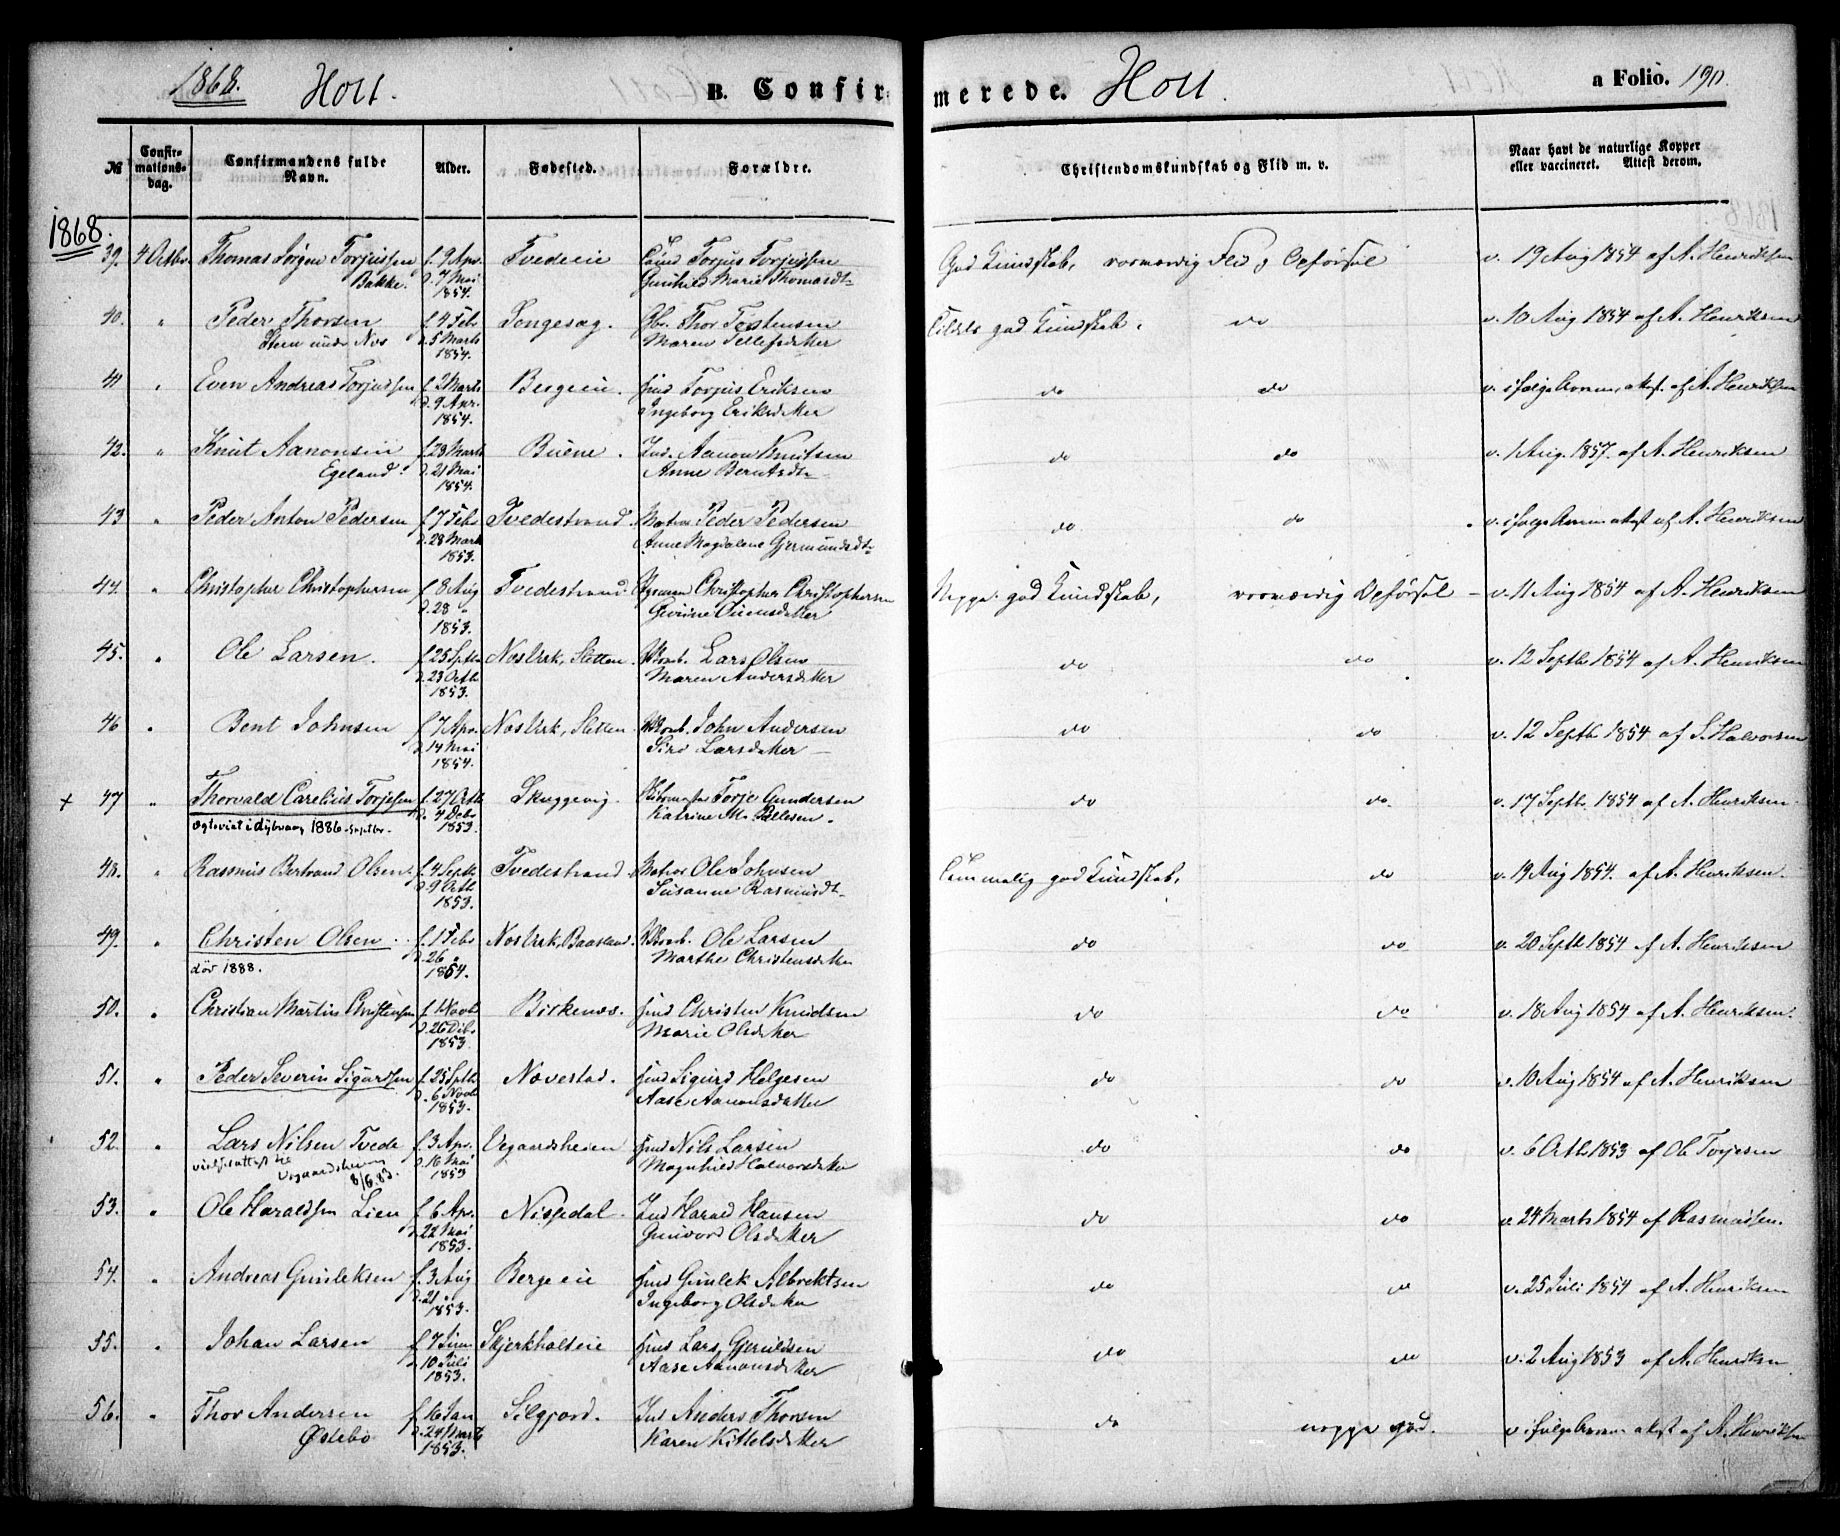 1868. Holt. B. Confirmerede. Holt. a Folio. 190.
No Confirmationsdag. Confirmandens fulde Navn. Alder. Fødested. Forældre. Christendomskundskab og Flid m. v. Naar havt de naturlige Kopper eller vaccineret. Attest derom.
1868.
39. 4 Octbr. Thomas Jørgen Torjussen f. 9 Apr. Tvedeeie Torjus Torjussen God Kundskab, vornværdig Flid og Opførsel v. 19 Aug 1854 af A. Henriksen
Bakke. d. 7 Mai Gunhild Marie Thomasdt
1854.
40. " Peder Thorsen f. 4 Feb Songesag. Gbr. Thor Tostensen Tildels god Kundskab. do v. 10 Aug 1854 af A. Henriksen
under Næs d. 5 Marts Maren Tellefsdatter
1854.
41 " Even Andreas Torjussen f. 2 Marts Bergeeie. Huusmd Torjus Eriksen do do v. ifølge Attest af A. Henriksen
d. 9 Apr. Ingeborg Eriksdatter
1854.
42. " Knut Aanonsen f. 28 Marts Buene. Ind. Aanon Knutsen do do v. 1 Aug. 1857. af A. Henriksen
Egeland. d. 21 Mai Anne Berntsdt
1854.
43 " Peder Anton Pedersen f. 7 Feb Tvedestrand. Matros Peder Pedersen do do v. ifølge Attest af A. Henriksen
d. 28 Marts Anne Magdalene Gjermundsdt
1853.
44. " Christopher Christophersen f. 8 Aug Tvedestrand. Christopher Christophersen Nogga god Kundskab, vornværdig Opførsel v. 11 Aug 1854 af A. Henriksen
d. 28 "
1853.
45. " Ole Larsen. f. 25 Septb Næs Værk, Sletten. Lars Olsen do do v. 12 Septb 1854 af A. Henriksen
d. 23 Octb Maren Andersdatter
1853.
46 " Bent Johnsen f. 7 Apr. Næs Værk, Sletten. John Andersen do do v. 12 Septb 1854 af S. Halvorsen
d. 14 Mai Siri Larsdatter
1854.
+ 47 " Thorvald Carelius Torjesen f. 27 Octb Skuggevig. Torje Gundersen do do v. 17 Septb. 1854 af A. Henriksen.
Ægteviet i Dybvaag 1886. Septbr. d. 4 Debr Katrine M. Pellesen.
1853.
48. " Rasmus Bertrand Olsen. f. 4 Septb Tvedestrand Matros Ole Johnsen Temmelig god Kundskab, do v. 19 Aug 1854. af A. Henriksen.
d. 9 Octb Susanne Rasmusdt
1853.
49. " Christen Olsen f. 1 Feb Næs Værk, Baasland. Ole Larsen do do v. 20 Septb 1854 af A. Henriksen
død 1888. d. 26 " Marthe Christensdatter
1854.
50. " Christian Martin Christensen f. 1 Novb Birkenæs. Huusmd Christen Knudsen do do v. 18 Aug 1854 af A. Henriksen.
d. 26 Debr Marie Olsdatter
1853.
51. " Peder Severin Sigurdsen f. 25 Septb Nævestad. Huusmd Sigurd Helgesen do do v. 10 Aug 1854 af A. Henriksen
d. 6 Novb Aase Aanonsdatter
1853.
52. " Lars Nilsen Tvede f. 3 Apr. Vegaardsheien Huusmd Nils Larsen do do v. 6 Octb 1853 af Ole Torjesen
vielsesattest til d. 16 Mai Magnhild Halvorsdatter
Vegaardsheien 1853
8/6.83.
53. " Ole Haraldsen Lien f. 6 Apr. Nissedal. Ind Harald Hansen do do v. 24 Marts 1854 af Rasmussen.
d. 22 Mai Gunvord Olsdatter
1853.
54. " Andreas Gunleksen f. 3 Aug Bergeeie Huusmd Gunlek Albrektsen do do v. 25 Juli 1854 af A. Henriksen
d. 21 " Ingeborg Olsdatter
1853.
55. " Johan Larsen f. 7 Juni Skjerkholteie Huusmd Lars Gjeruldsen do do v. 2 Aug 1853 af A. Henriksen
d. 10 Juli Aase Aanonsdatter
1853.
56. " Thor Andersen f. 16 Jan Silgjord. Ind Anders Thorsen do nogga god. v. ifølge Attest af A. Henriksen
Østebø d. 24 Marts Karen Kittelsdatter
1853.